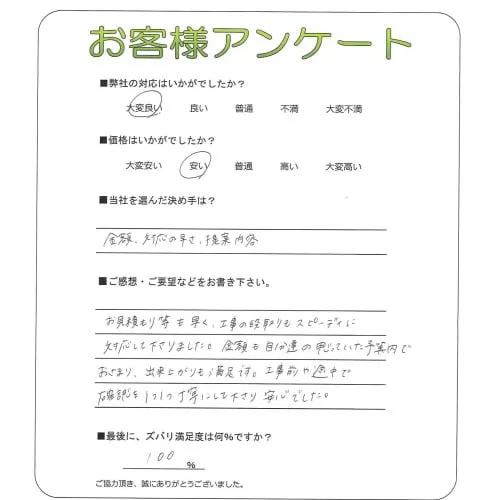 お客様アンケート
■弊社の対応はいかがでしたか？
大変良い 良い 普通 不満 大変不満
■価格はいかがでしたか？
大変安い 安い 普通 高い 大変高い
■当社を選んだ決め手は？
金額、対応の早さ、提案内容
■ご感想・ご要望などをお書き下さい。
お見積もり等も早く、工事の段取りもスピーディに
対応して下さりました。金額も自分達の思っていた予算内で
おさまり、出来上がりもう満足です。工事前や途中で
確認を1つ1つ丁寧にして下さり安心でした。
■最後に、ズバリ満足度は何％ですか？
100 ％
ご協力頂き、誠にありがとうございました。